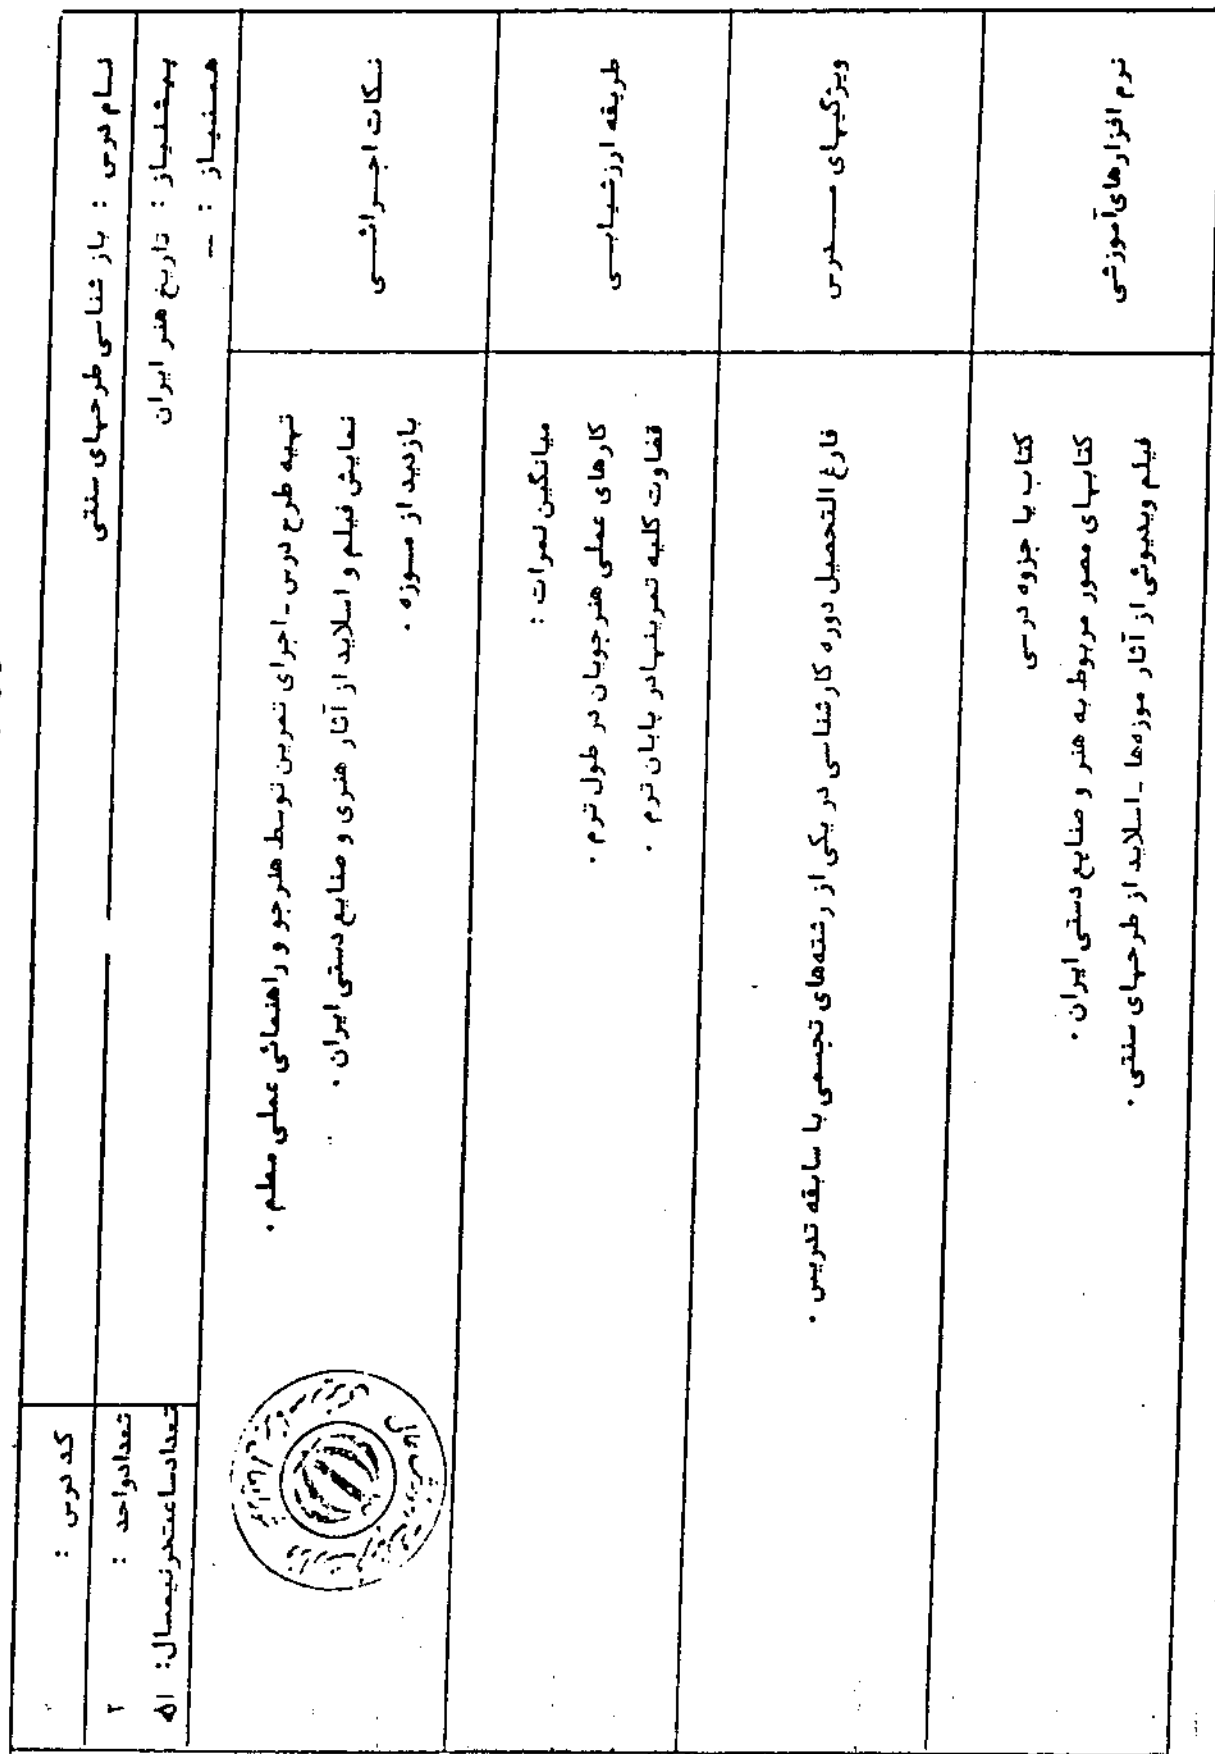 نام درس : باز شناسی طرحهای سنتی
کد درس :
پیشنیاز : تاریخ هنر ایران
تعداد واحد : ۲
همنیاز : --
تعداد ساعت در نیمسال : ۵۱
نکات اجرائی
تهیه طرح درس - اجرای تمرین توسط هنرجو و راهنمائی عملی معلم .
نمایش فیلم و اسلاید از آثار هنری و صنایع دستی ایران .
بازدید از موزه .
طریقه ارزشیابی
میانگین نمرات :
کارهای عملی هنرجویان در طول ترم .
قضاوت کلیه تمرینها در پایان ترم .
ویژگیهای مدرس
فارغ التحصیل دوره کارشناسی در یکی از رشته‌های تجسمی با سابقه تدریس .
نرم افزارهای آموزشی
کتاب یا جزوه درسی
کتابهای مصور مربوط به هنر و صنایع دستی ایران .
فیلم ویدیوئی از آثار موزه‌ها - اسلاید از طرحهای سنتی .